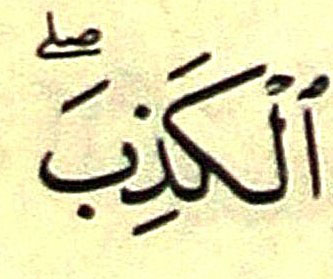 ٱلْكَذِبَ ۖ